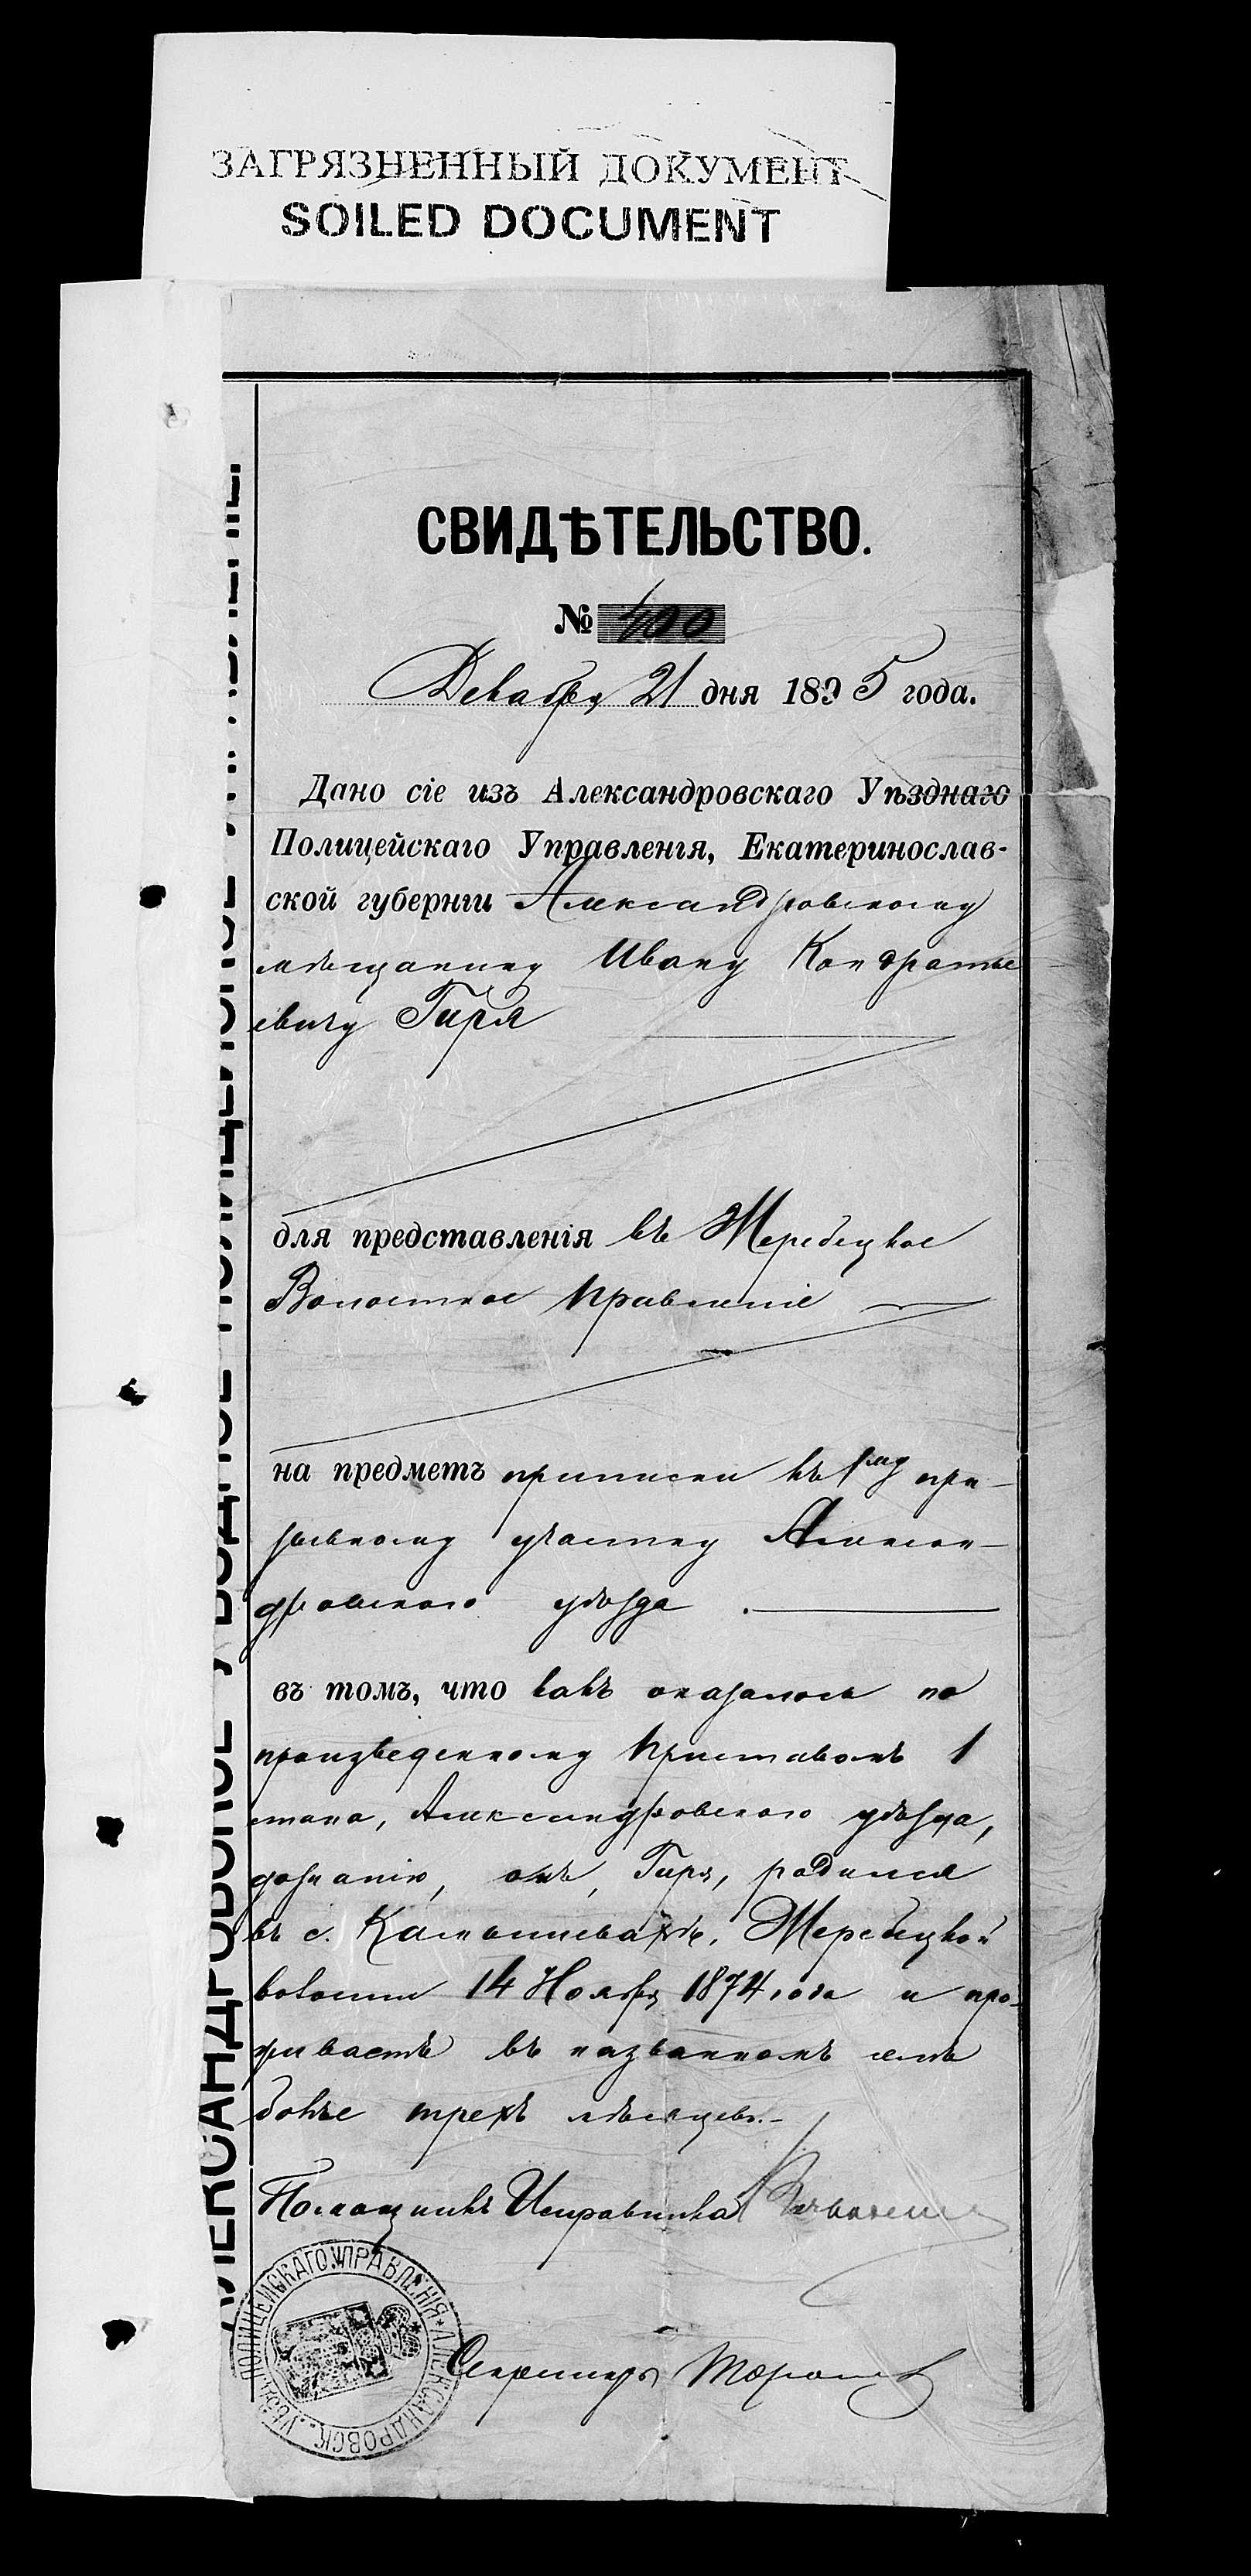 ЗАГРЯЗНЕННЫЙ ДОКУМЕНТ
SOILED DOCUMENT
СВИДѢТЕЛЬСТВО.
№ 400
Декабря 21 дня 1895 года.
Дано сіе изъ Александровскаго Уѣзднаго
Полицейскаго Управленія, Екатеринослав-
ской губерніи Александровскому
мѣщанину Ивану Кондратье
евичу Гиря
для представленія въ Жеребецкое
Волостное Правленіе
на предметъ приписки къ 1му при-
зывному участку Алексан-
дровскаго уѣзда
въ томъ, что какъ оказалось по
произведенному Приставомъ 1
стана, Александровскаго уѣзда,
дознанію, онъ, Гиря, родился
въ с. Камышевахѣ, Жеребецкой
волости 14 Ноября 1874 года и про-
живаетъ въ названномъ селѣ
болѣе трехъ мѣсяцевъ.-
Помощникъ Исправника
Секретарь
АЛЕКСАНДРОВСКОЕ УѢЗДНОЕ ПОЛИЦЕЙСКОЕ УПРАВЛЕНІЕ.
АЛЕКСАНДРОВСК. УѢЗДН. ПОЛИЦЕЙСКАГО УПРАВЛЕНІЯ